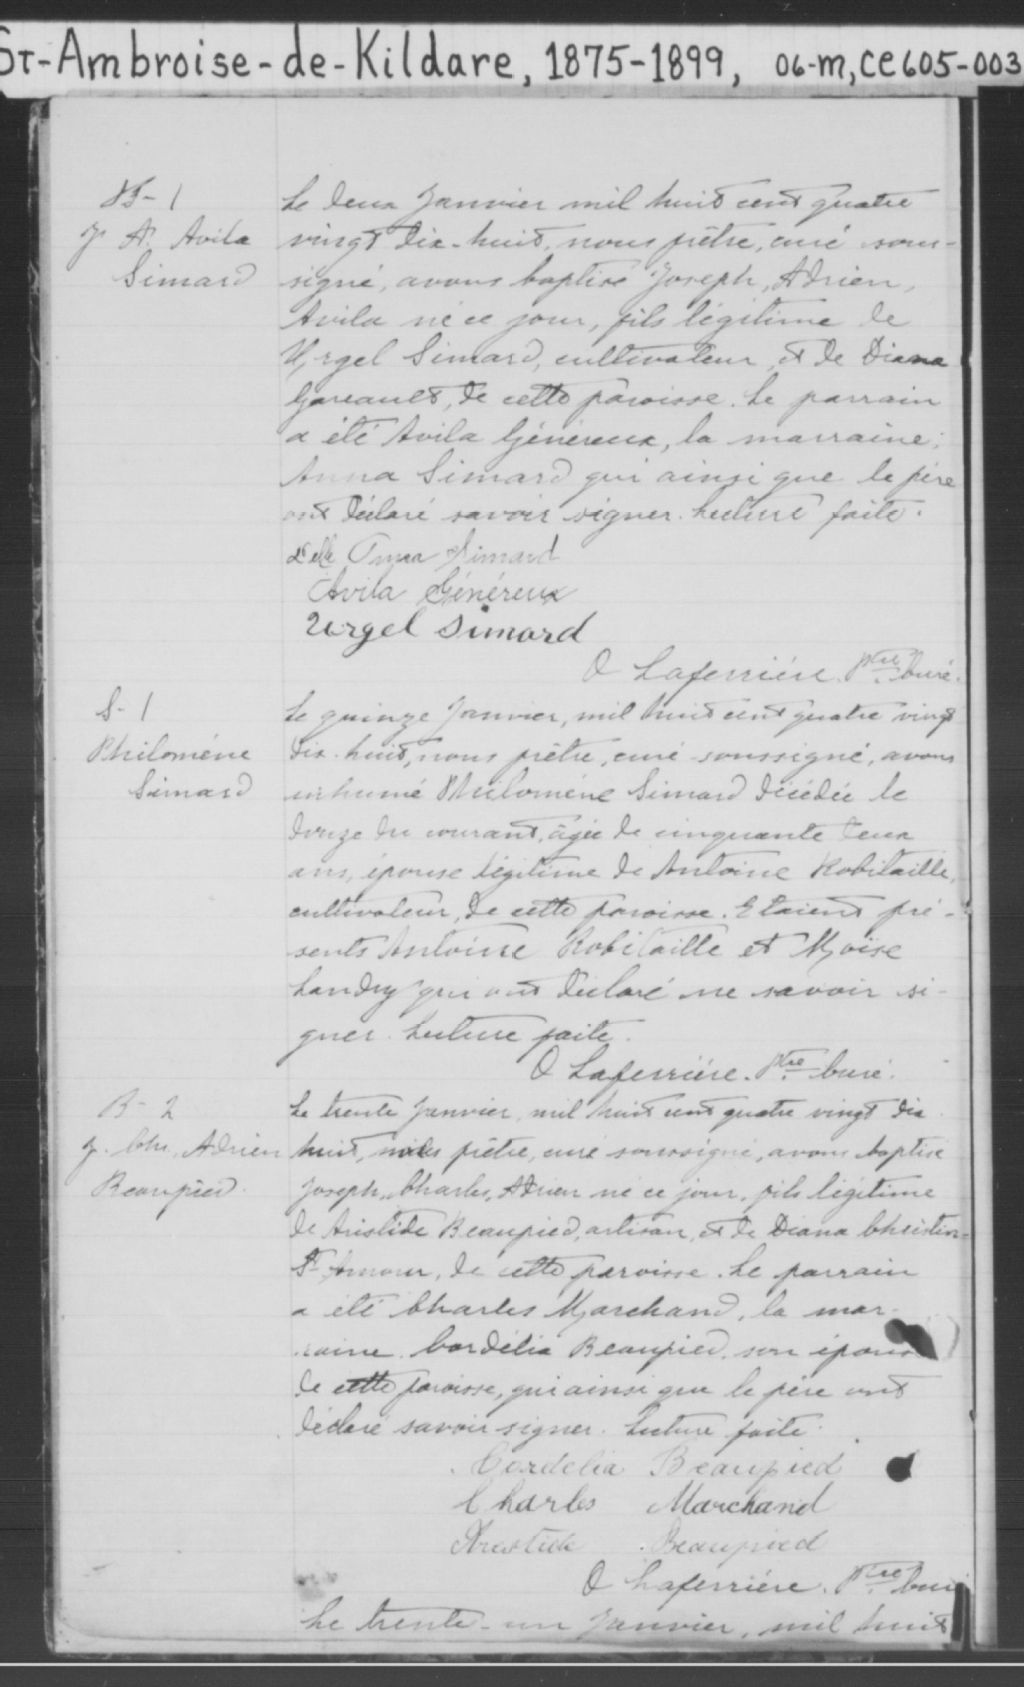 St-Ambroise-de-Kildare, 1875-1899, 06-M, CE605-003
B-1
J. A. Avila
Simard
Le deux Janvier mil huit cent quatre
vingt dix-huit, nous prêtre, curé sous-
signé, avons baptisé Joseph, Adrien,
Avila né ce jour, fils légitime de
Urgel Simard, cultivateur, et de Diana
Gareault, de cette paroisse. Le parrain
a été Avila Généreux, la marraine,
Anna Simard qui ainsi que le père
ont déclaré savoir signer. Lecture faite.
Delle Anna Simard
Avila Généreux
Urgel Simard
O Laferrière. Ptre Curé.
S-1
Philomène
Simard
Le quinze Janvier, mil huit cent quatre vingt
dix-huit, nous prêtre, curé soussigné, avons
inhumé Philomène Simard décédée le
douze du courant, âgée de cinquante deux
ans, épouse légitime de Antoine Robitaille,
cultivateur, de cette paroisse. Etaient pré-
sents Antoine Robitaille et Moïse
Landry qui ont déclaré ne savoir si-
gner. Lecture faite.
O Laferrière. Ptre Curé.
B-2
J. Chs. Adrien
Beaupied.
Le trente Janvier, mil huit cent quatre vingt dix
huit, nous prêtre, curé soussigné, avons baptisé
Joseph, Charles, Adrien né ce jour, fils légitime
de Aristide Beaupied, artisan, et de Diana Christin-
St Amour, de cette paroisse. Le parrain
a été Charles Marchand, la mar-
raine Cordélia Beaupied, son épouse
de cette paroisse, qui ainsi que le père ont
déclaré savoir signer. Lecture faite.
Cordelia Beaupied
Charles Marchand
Aristide Beaupied
O Laferrière. Ptre Curé
Le trente-un Janvier, mil huit